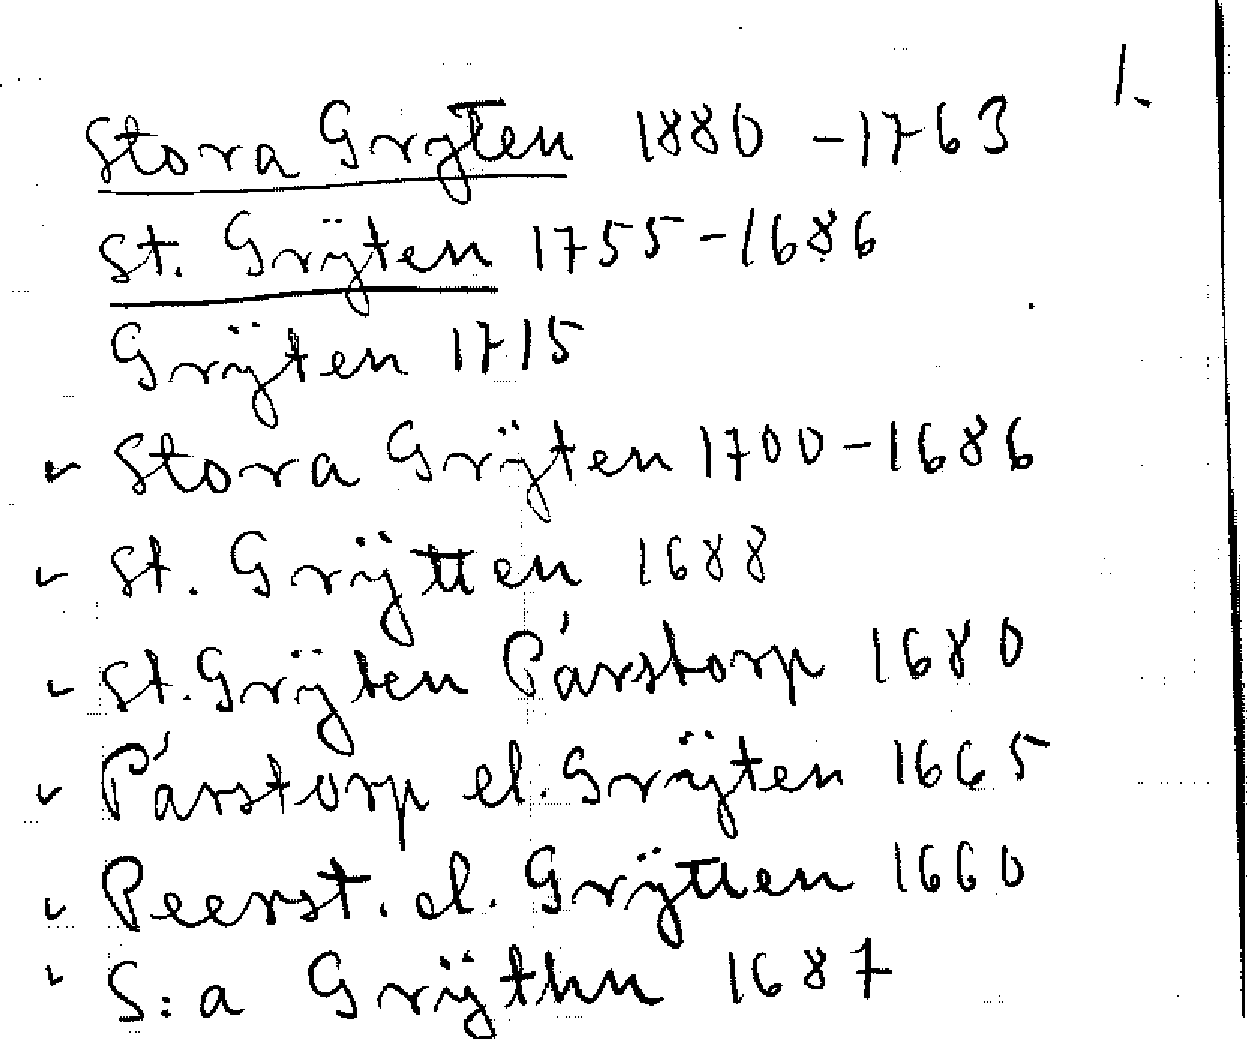 1.
Stora Gryten 1880 - 1763
St. Grÿten 1755 - 1686
Grÿten 1715
Stora Grÿten 1700 - 1686
St. Grÿtten 1688
St. Grÿten Párstorp 1680
Párstorp el. Grÿten 1665
Peerst. el. Grÿtten 1660
S:a Grÿthn 1687